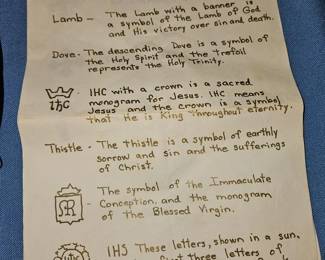 Lamb - The Lamb with a banner is
a symbol of the Lamb of God
and His victory over sin and death.
Dove - The descending Dove is a symbol of
the Holy Spirit and the trefoil
represents the Holy Trinity.
IHC - IHC with a crown is a sacred
monogram for Jesus. IHC means
Jesus and the crown is a symbol
that He is King throughout eternity.
Thistle - The thistle is a symbol of earthly
sorrow and sin and the sufferings
of Christ.
- The symbol of the Immaculate
Conception, and the monogram
of the Blessed Virgin.
IHS These letters, shown in a sun,
first three letters of